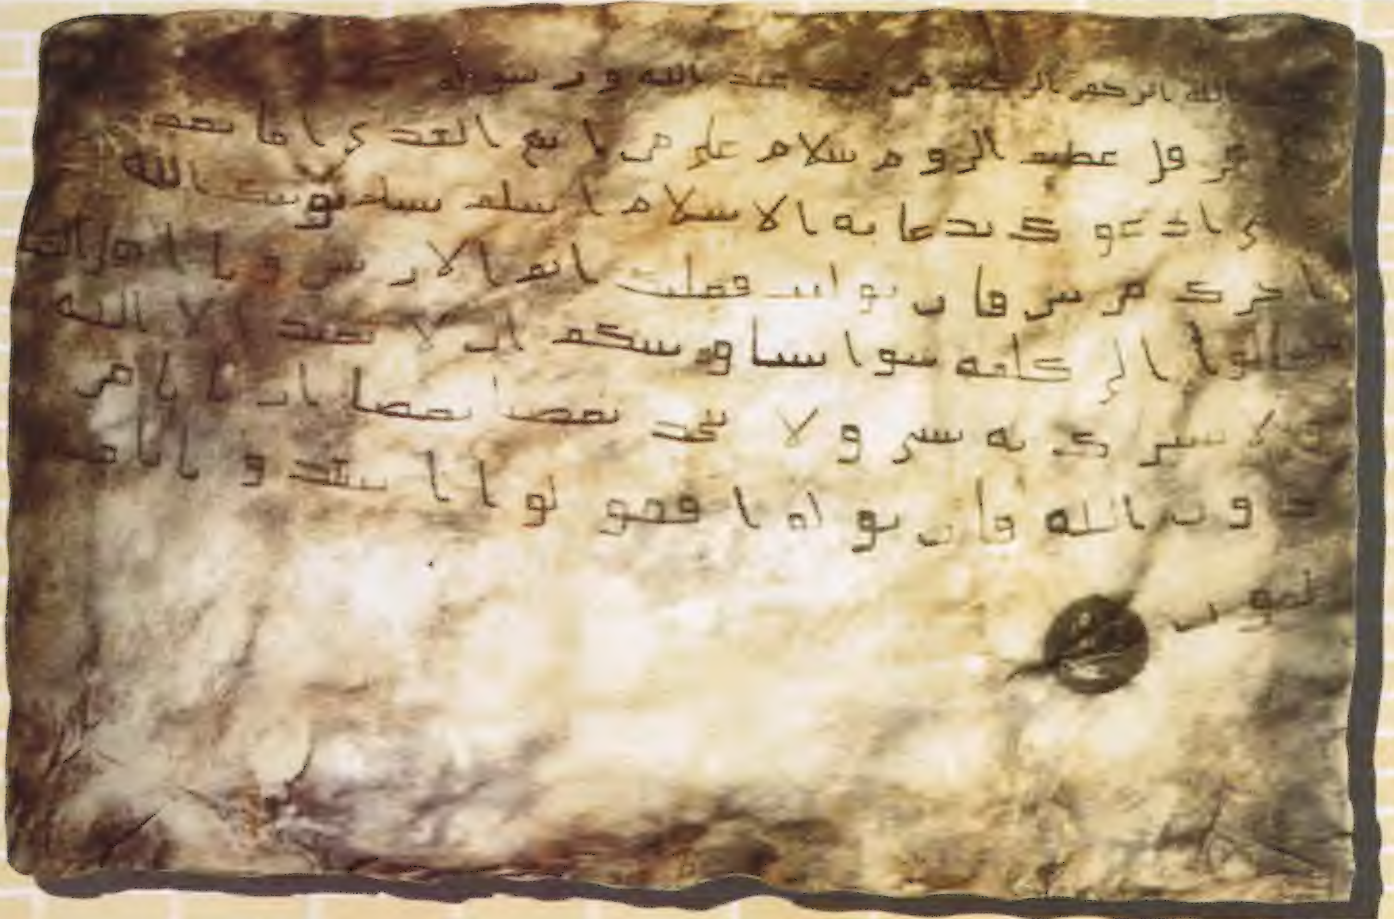 الله الرحمن الرحيم من محمد عبد الله و رسوله
هر قل عظيم الرو م سلام على من ا تبع الهد ى ا ما بعد
ى اد عو ك بدعا يه الا سلام ا سلم تسلم يوتك الله
ا جرك مر تين فا ن تو ليت فعليك اثم الار يسين و يا ا هل الكتا
تعالوا ا لى كلمه سوا بيننا و بينكم ان لا نعبد ا لا الله
و لا نشر ك به شى و لا يتخذ بعضنا بعضا ار با با من
د و ن الله فا ن تو لو ا فقو لوا ا شهد و ا با نا مس
لمو ن